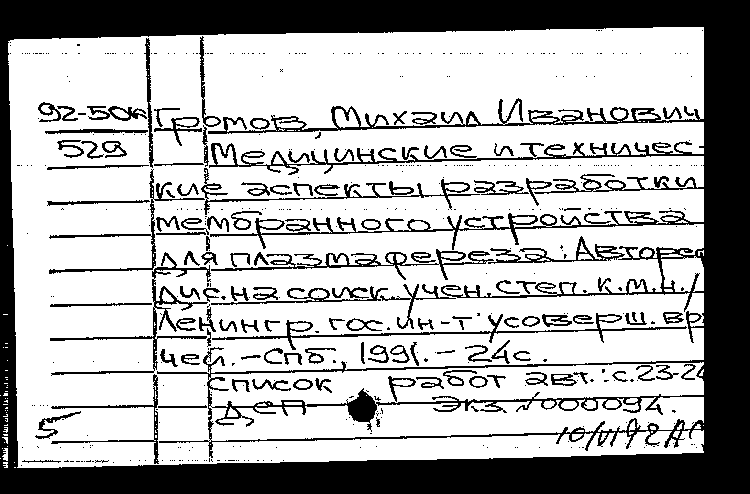 92-50к Громов, Михаил Иванович
529 Медицинские и техничес-
кие аспекты разработки
мембранного устройства
для плазмафереза : Авторе
дис. на соиск. учен. степ. к.м.н./
Ленингр. гос. ин-т усоверш. вр
чей. – Спб., 1991. – 24с.
список работ авт.: с.23-24
ДЕП Экз №000094.
5 10/VI 92